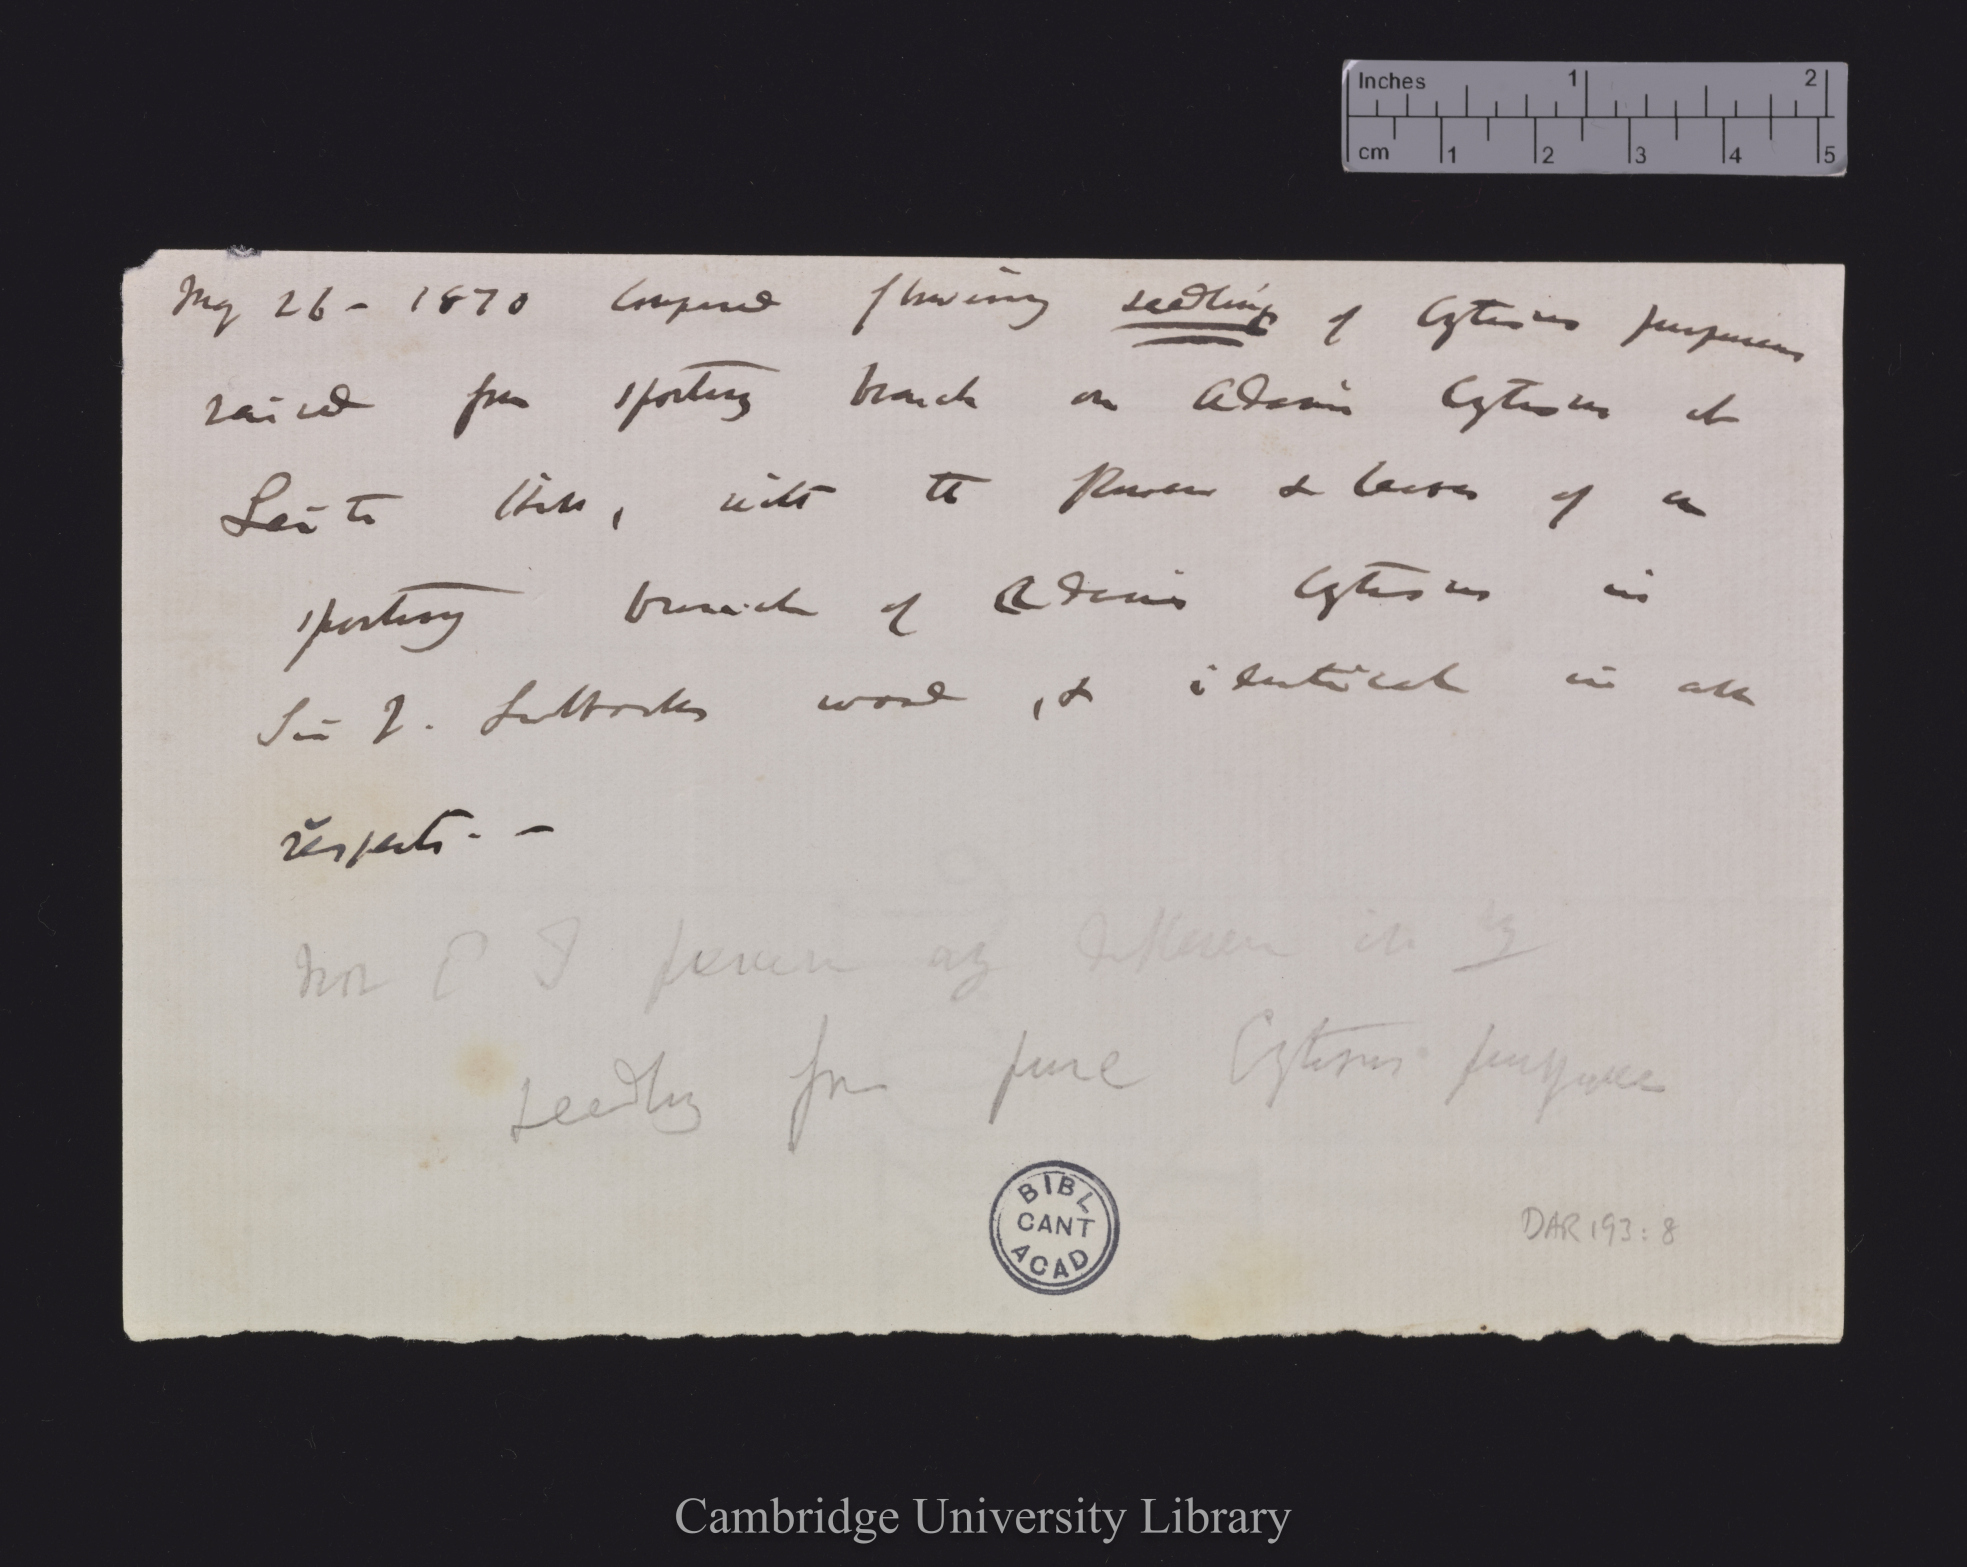 Inches 1 2
cm 1 2 3 4 5
May 26 - 1870 Compared flowering seedlings of Cytisus purpureus
raised from sporting branch on Adami Cytisus at
Leith Hill, with the flowers & leaves of a
sporting branch of Adami Cytisus in
Sir J. Lubbocks wood, & identical in all
respects. —
Nor C^d I perceive any difference in
seedling from pure Cytisus purpureus
BIBL
CANT
ACAD
DAR 193: 8
Cambridge University Library